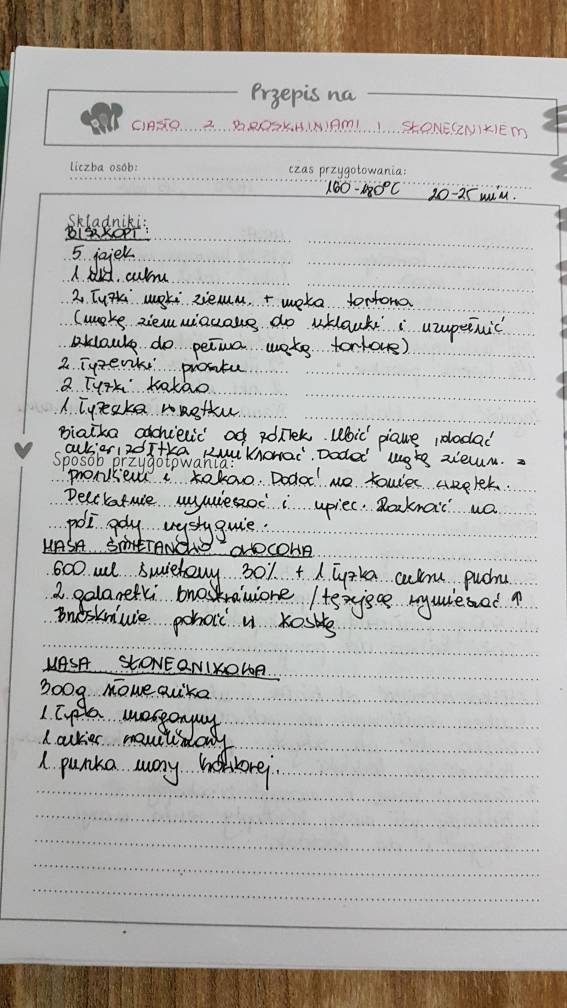 Przepis na
CIASTO Z BROSKHINIAMI I SŁONECZNIKIEM
liczba osób:
czas przygotowania:
160-180°C 20-25 min.
Składniki:
BISZKOPT:
5 jajek
1 cukru
2 łyżki mąki ziemn. + mąka tortowa
(mąkę ziemniaczaną do szklanki i uzupełnić
szklankę do pełna mąką tortową)
2 łyżeczki proszku
2 łyżki kakao
1 łyżeczka wrzątku
Białka oddzielić od żółtek. Ubić pianę, dodać
cukier, żółtka zmiksować. Dodać mąkę ziemn. z
Sposób przygotowania:
proszkiem i kakao. Dodać na koniec wrzątek.
Delikatnie wymieszać i upiec. Rozkroić na
pół gdy wystygnie.
MASA ŚMIETANOWO OWOCOWA
600 ml śmietany 30% + 1 łyżka cukru pudru
2 galaretki brzoskwiniowe /tężejące wymieszać ↑
Brzoskwinie pokroić w kostkę
MASA SŁONECZNIKOWA
300g słonecznika
1 łyżka margaryny
1 cukier wanilinowy
1 puszka masy krówkowej.